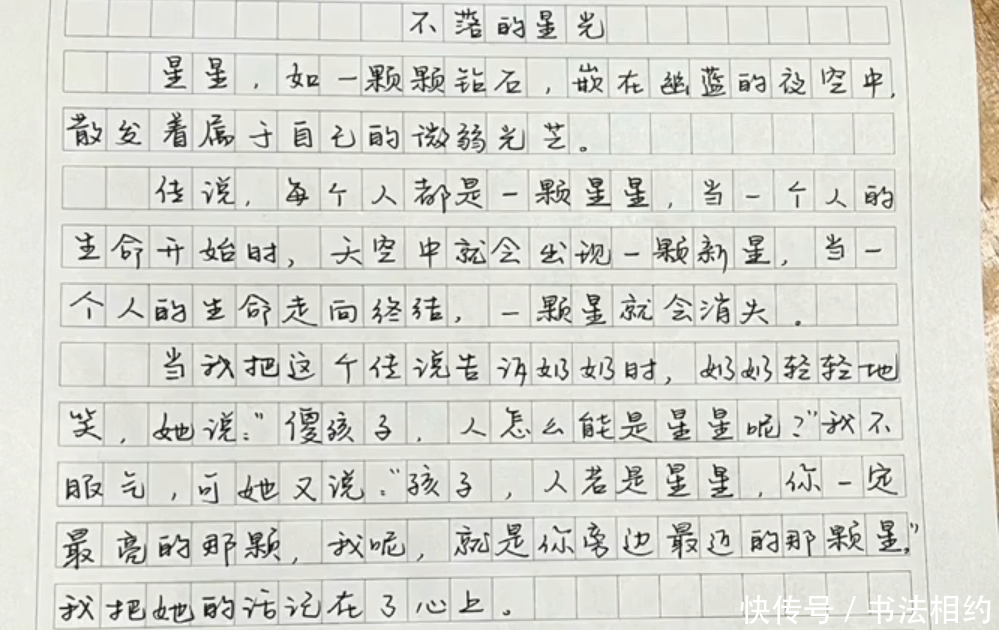 不落的星光
星星，如一颗颗钻石，嵌在幽蓝的夜空中，
散发着属于自己的微弱光芒。
传说，每个人都是一颗星星，当一个人的
生命开始时，天空中就会出现一颗新星，当一
个人的生命走向终结，一颗星就会消失。
当我把这个传说告诉奶奶时，奶奶轻轻地
笑，她说：“傻孩子，人怎么能是星星呢？”我不
服气，可她又说：“孩子，人若是星星，你一定
最亮的那颗，我呢，就是你旁边最近的那颗星。”
我把她的话记在了心上。
快传号 / 书法相约